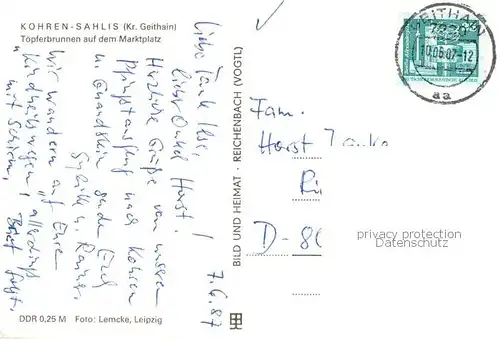 KOHREN-SAHLIS (Kr. Geithain)
Töpferbrunnen auf dem Marktplatz
7.6.87
Liebe Tante Ilse,
lieber Onkel Horst!
Herzliche Grüße von unserem
Pfingstausflug nach Kohren
u. Gnandstein senden Euch
Sybille u. Rainer.
Wir wandern auf Ihren
"Kindheitswegen", allerdings
mit Schirm. Brief folgt.
DDR 0,25 M Foto: Lemcke, Leipzig
BILD UND HEIMAT · REICHENBACH (VOGTL)
GEITHAIN
7230
10.06.87-12
aa
Fam.
Horst
D-80
privacy protection
Datenschutz